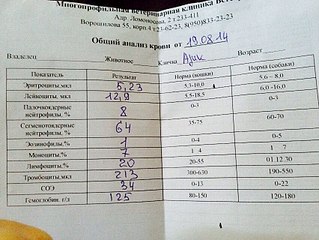 Многопрофильная ветеринарная клиника
Адр. Ломоносова, 2 т.233-411
Ворошилова 55, корп.4 т.21-62-23, 8(950)833-23-23
Общий анализ крови от 19.08.14
Животное Кличка Возраст
Показатель Результат Норма (кошки) Норма (собаки)
Эритроциты.мкл 5,23 5.3-10,0 5.6 – 8,0
Лейкоциты. мкл 12,9 5.5-18.5 6.0 -16,0
Палочкоядерные нейтрофилы. % 8 0-3 0-3
Сегментоядерные нейтрофилы. % 64 35-75 60-70
Эозинофилы.%
Моноциты.% 1 4 1 7
Лимфоциты.% 20 20-55 01.12.30
Тромбоциты.мкл 213 300-630 190-550
СОЭ 34 0-13 0-22
Гемоглобин. г/л 125 80-150 120-180